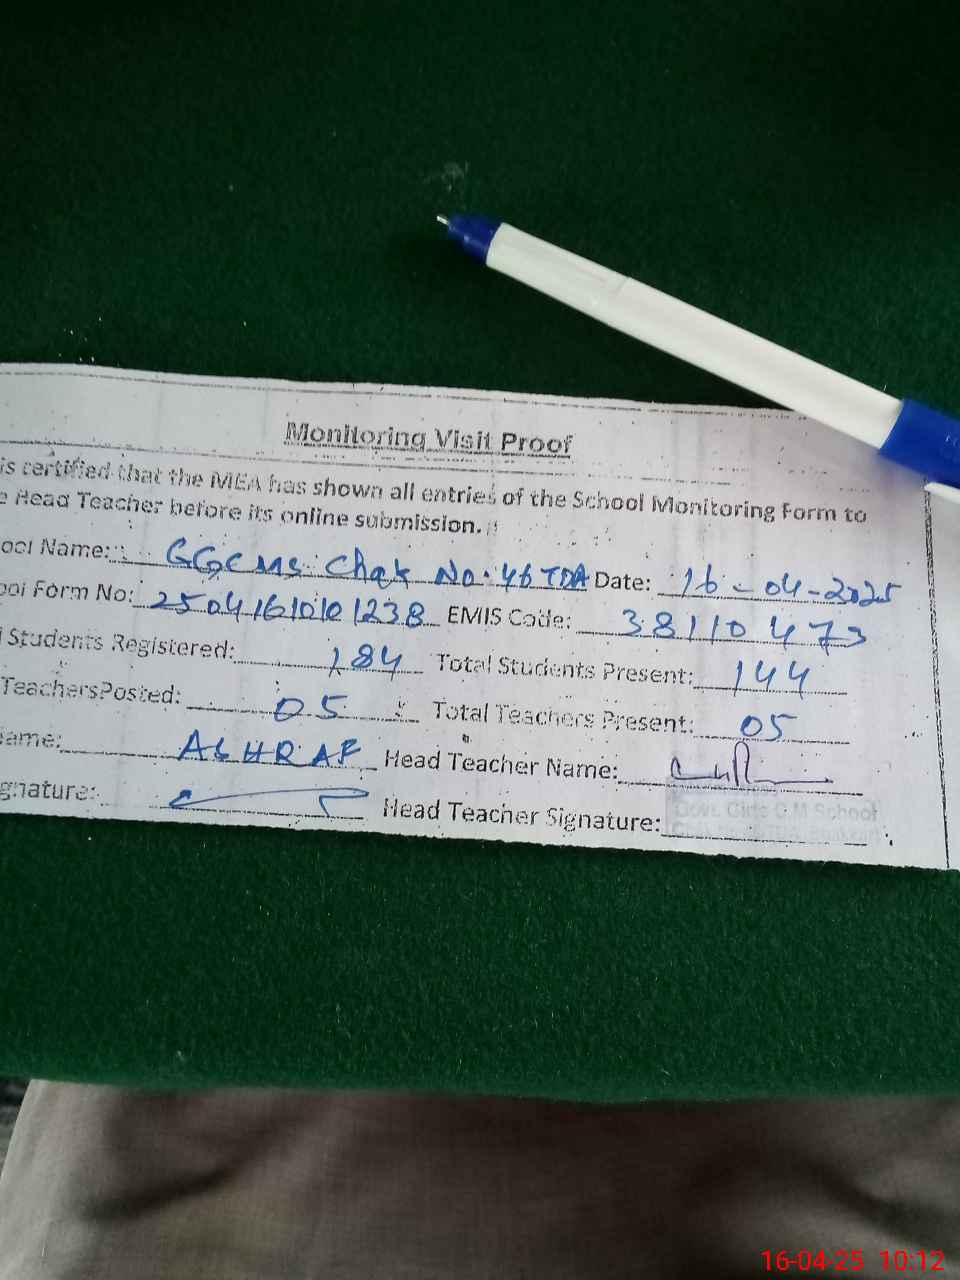 Monitoring Visit Proof
is certified that the MEA has shown all entries of the School Monitoring Form to
e Head Teacher before its online submission.
ool Name: GGCMS Chak No. 46 TDA Date: 16-04-2025
ool Form No: 2504161010 1238 EMIS Code: 38110473
l Students Registered: 184 Total Students Present: 144
TeachersPosted: 05 Total Teachers Present: 05
ame: ASHRAF Head Teacher Name:
gnature: Head Teacher Signature:
Govt. Girls C.M School
16-04-25 10:12